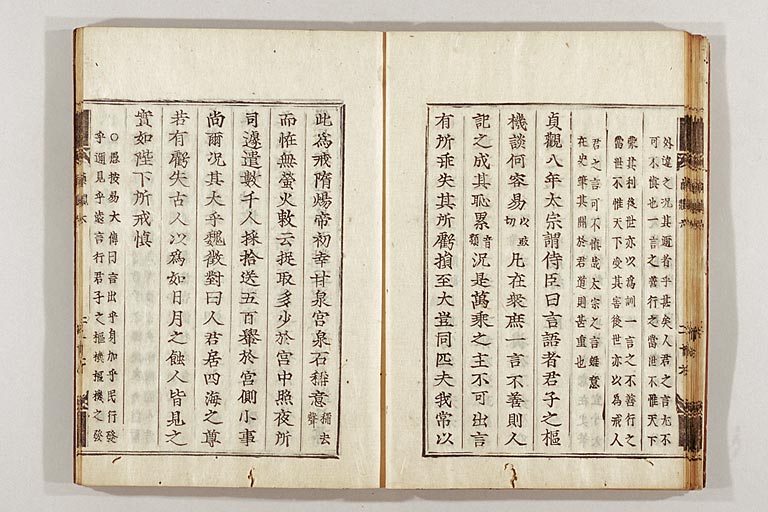 外違之況其邇者乎甚矣人君之言尤不
可不慎也一言之善行之當世不惟天下
蒙其利後世亦以爲訓一言之不善行之
當世不惟天下受其害後世亦以爲戒人
君之言可不慎哉太宗之言雖意
在史筆其關於君道則甚重也
貞觀八年太宗謂侍臣曰言語者君子之樞
機談何容易以豉切凡在衆庶一言不善則人
記之成其恥累音類況是萬乘之主不可出言
有所乖失其所虧損至大豈同匹夫我常以
此爲戒隋煬帝初幸甘泉宮泉石稱意稱去聲
而恠無螢火敕云捉取多少於宮中照夜所
司遽遣數千人採拾送五百轝於宮側小事
尚爾況其大乎魏徵對曰人君居四海之尊
若有虧失古人以爲如日月之蝕人皆見之
實如陛下所戒慎
○愚按易大傳曰言出乎身加乎民行發
乎邇見乎遠言行君子之樞機樞機之發